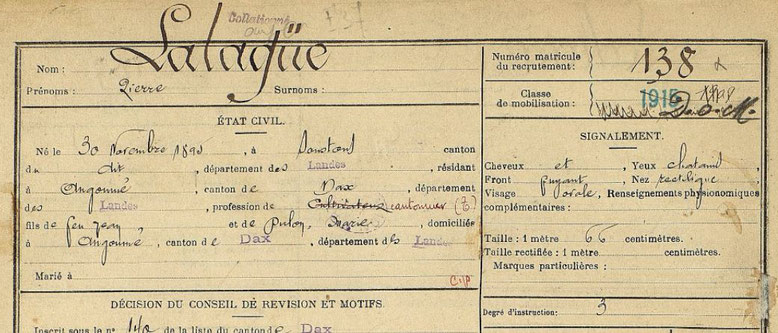 Collationné
137
Lalagüe
Nom :
Prénoms : Pierre Surnoms :
Numéro matricule
du recrutement : 138
Classe
de mobilisation : 1915
ÉTAT CIVIL.
Né le 30 Novembre 189 , à canton
du dit , département des Landes , résidant
à Angoumé , canton de Dax , département
des Landes , profession de Cultivateur cantonnier (3)
fils de feu Jean et de Dulon, Marie , domiciliés
à Angoumé , canton de Dax , département des Landes
Marié à
DÉCISION DU CONSEIL DE REVISION ET MOTIFS.
Inscrit sous le n° de la liste du canton de Dax
SIGNALEMENT.
Cheveux et , Yeux chatains
Front fuyant , Nez rectiligne
Visage ovale , Renseignements physionomiques
complémentaires :
Taille : 1 mètre 66 centimètres.
Taille rectifiée : 1 mètre centimètres.
Marques particulières :
Degré d'instruction : 3